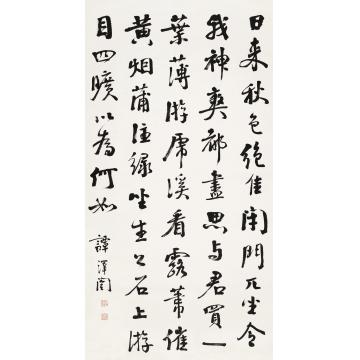 日来秋色绝佳闭門兀坐令
我神爽都盡思与君買一
葉薄游虎溪看露葦催
黄烟蒲注绿坐生公石上游
目四曠以為何如
譚澤闓